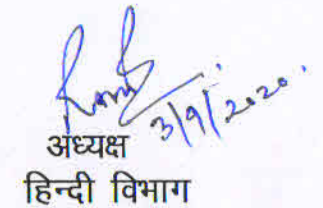 3/9/2020.
अध्यक्ष
हिन्दी विभाग